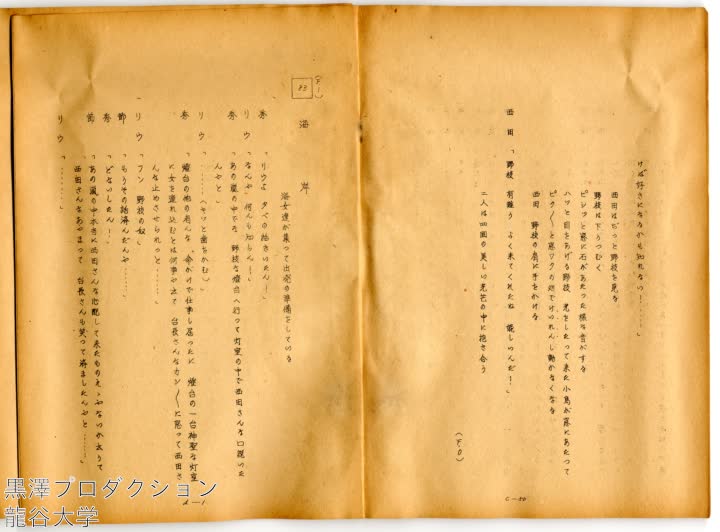 けば好きになるかも知れない！……」
西田はじっと野枝を見る
野枝は下うつむく
ピシッと窓に石があたった様な音がする
ハッと目をあげる野枝　光をしたって来た小鳥が窓にあたって
ピク〳〵と窓ワクの処でけいれんし動かなくなる
西田　野枝の肩に手をかける
西田「野枝　有難う　よく来てくれたね　嬉しいんだ！」
二人は四囲の美しい光芒の中に抱き合う
（F・O）
C—50
（F・I）
83
海岸
海女達が集って出発の準備をしている
寿「リウよ　夕べの話きいたん！」
リウ「なんや　何んも知らん！」
寿「あの嵐の中でな　野枝な燈台へ行つて灯室の中で西田さんな口説いた
んやと」
リウ「……（キッと歯をかむ）」
寿「燈台の他の者んな　命かけで仕事し居ったに　燈台の一台神聖な灯室
に女を連れ込むとは何事や云て　台長さんなカン〳〵に怒って西田さ
んな止めさせられっと……」
リウ「フン　野枝の奴」
節「もうその話済んだんや……」
寿「どないしたん！」
節「あの嵐の中本当に西田さんな心配して来たものええやないか太うて
西田さんなあやまって　台長さんも笑って済ましたんやと……」
リウ「………」
d—1
黒澤プロダクション
龍谷大学